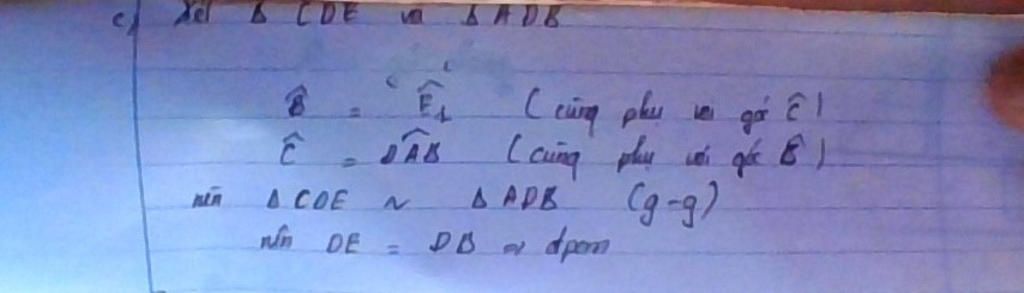 c) Xét Δ CDE và Δ ADB
B̂ = Ê₁ (cùng phụ với góc Ĉ)
Ĉ = DÂB (cùng phụ với góc B̂)
nên Δ CDE ~ Δ ADB (g-g)
nên DE = DB → đpcm